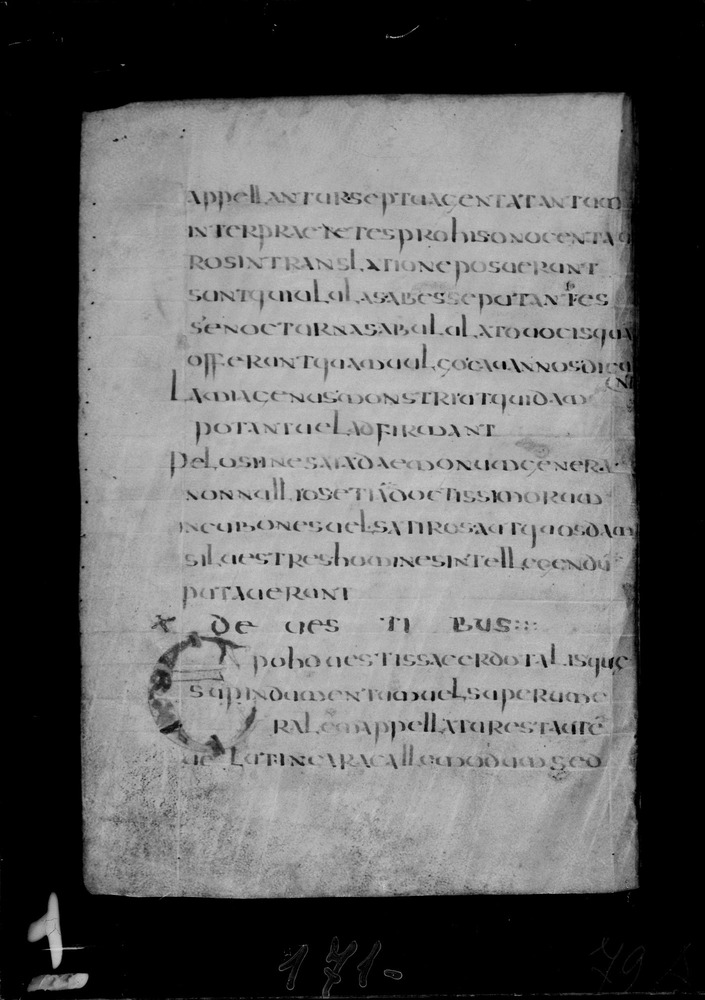 appellanturseptuagentatantum
interpraetetesprohisonocenta
rosintranslationeposuerunt
suntquiululasabesseputantes
senocturnasabululatouocisqua
offeruntquamuulgocauannosdicu
nt
lamiagenusmonstriutquidam
putantueladfirmant
pelosiinesaiadaemonumgenera
nonnulliosetiādoctissimorum
incubonesuelsatirosautquosdam
siluestreshominesintellegendū
putauerunt
x de ues ti bus
pohouestissacerdotalisque
supindumentumuelsuperume
ralemappellaturestautē
ue lutincaracallemodumsed
1
171-
79